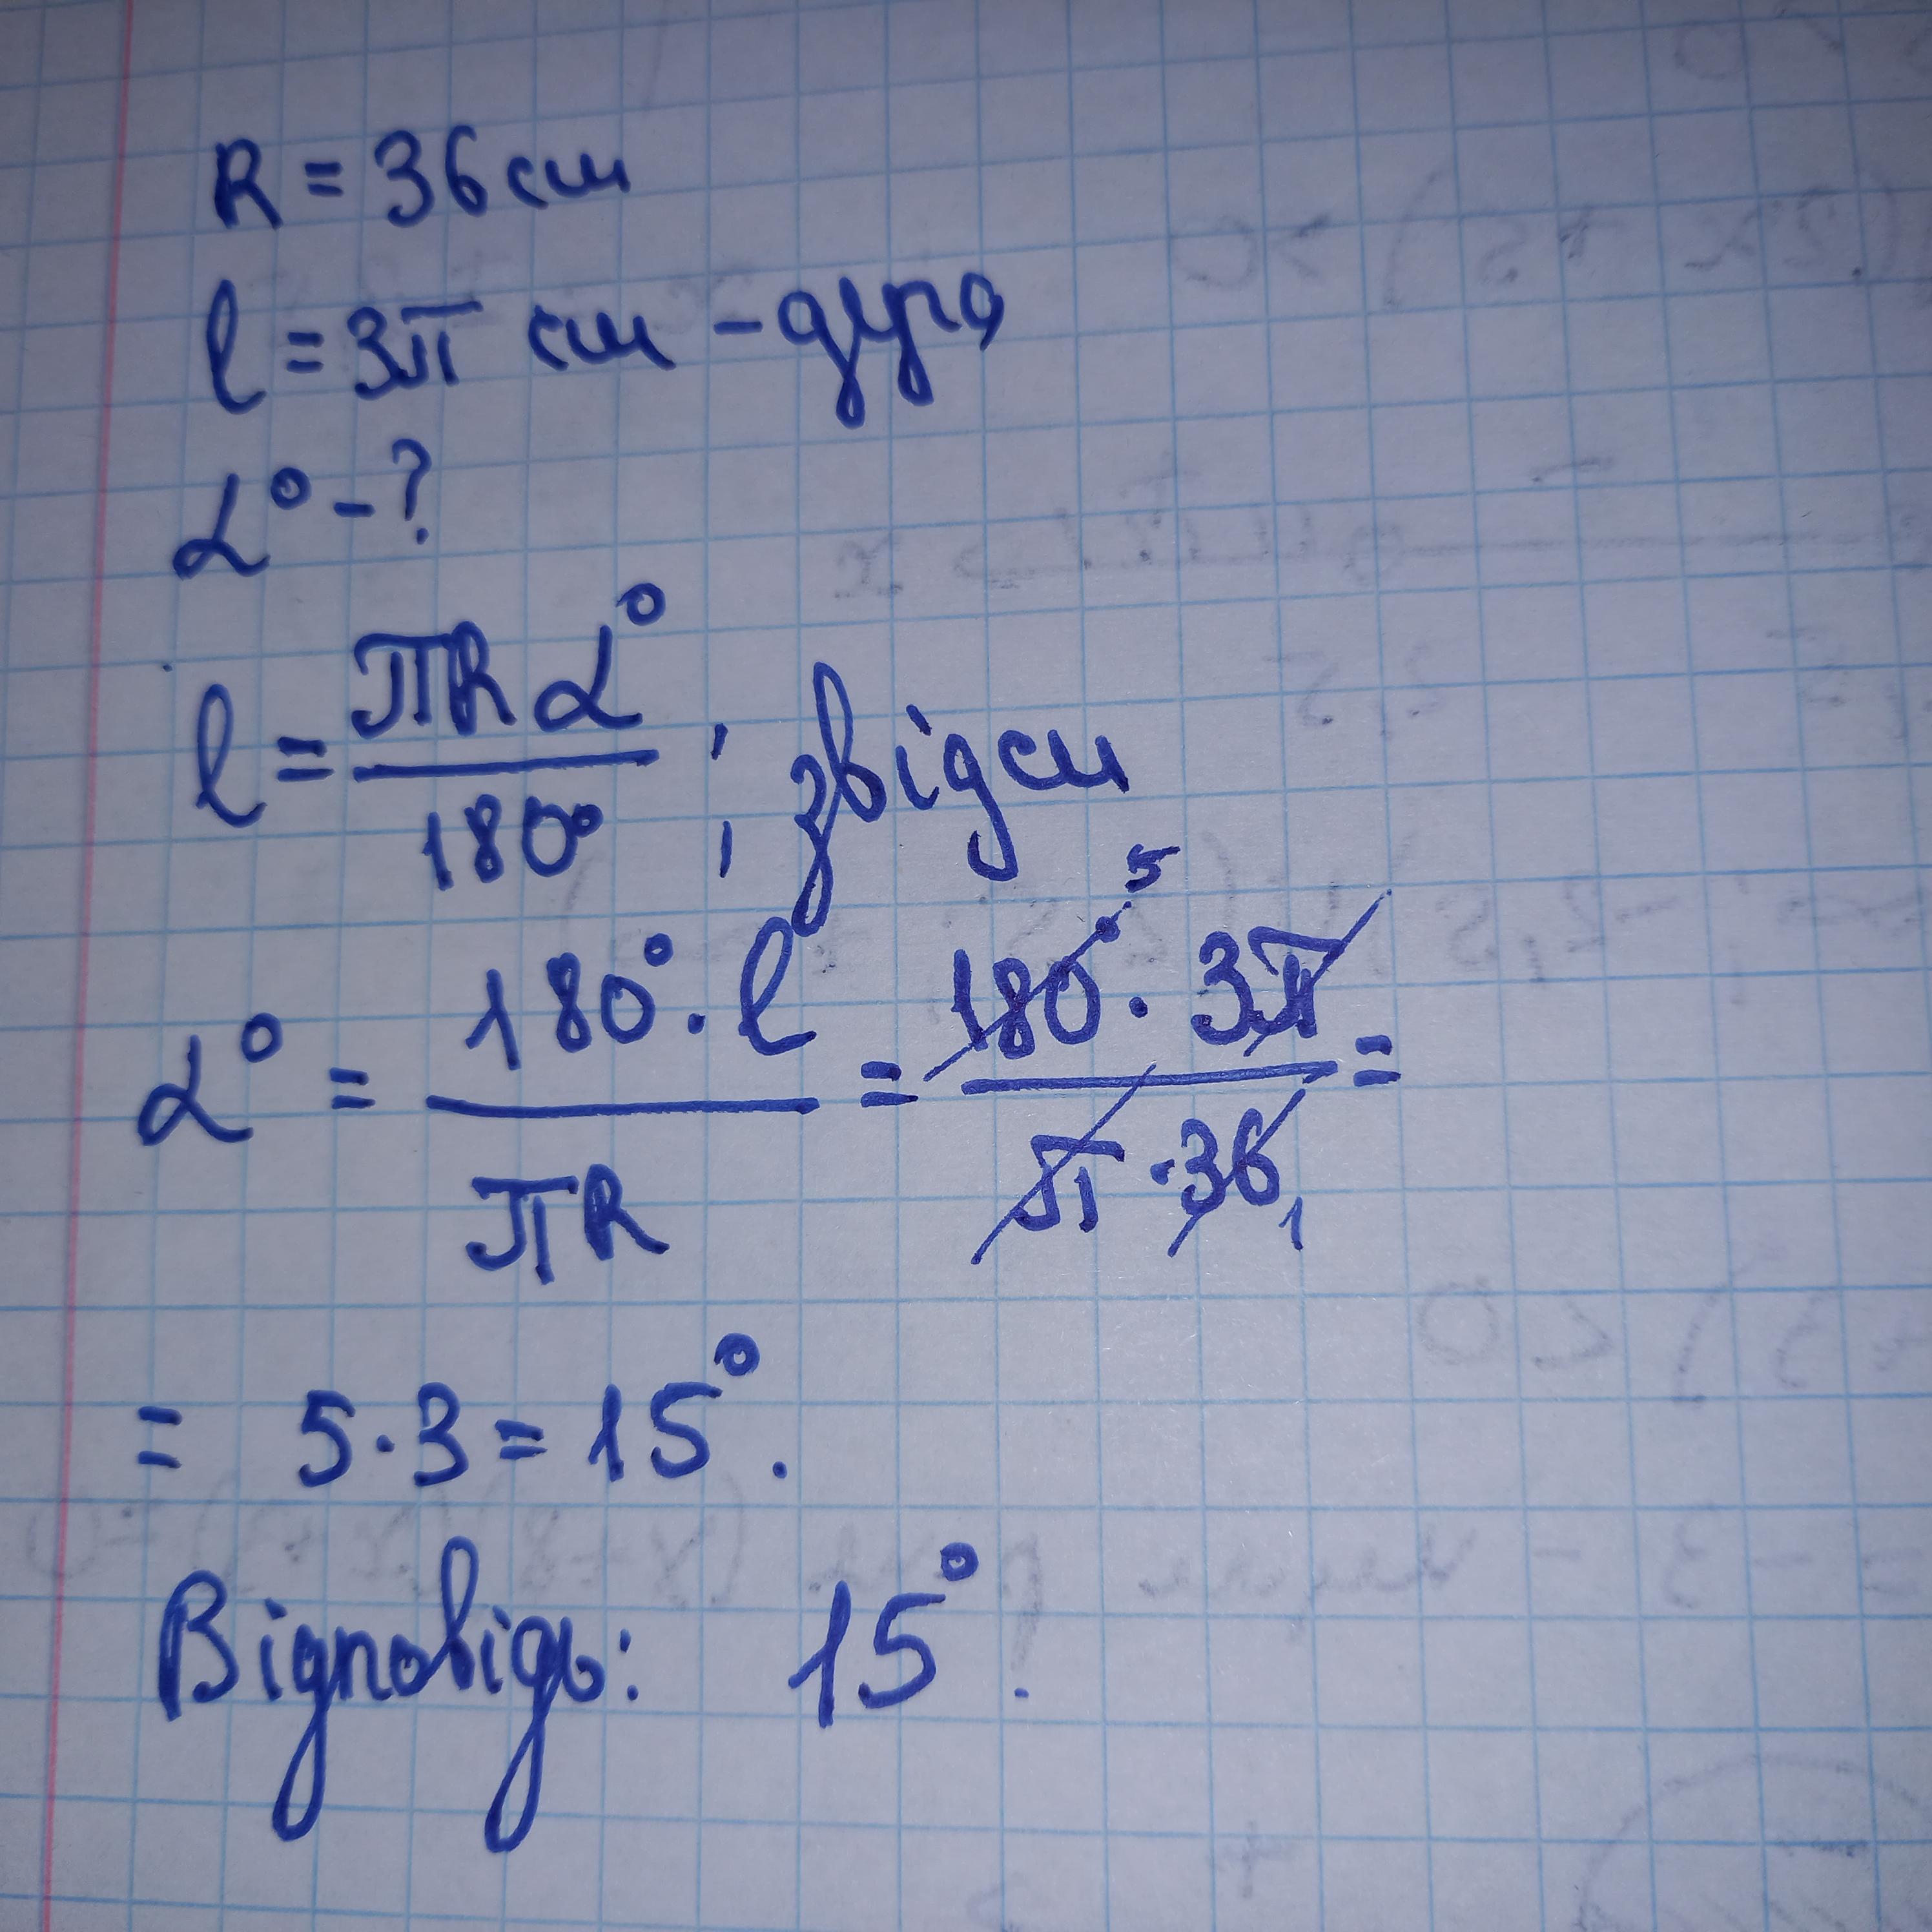 R = 36 см
l = 3π см - дуга
α° - ?
l = πRα° / 180° ; звідси
α° = 180° · l / πR = 180° · 3π / π · 36 = 5 1
= 5 · 3 = 15°.
Відповідь: 15°.